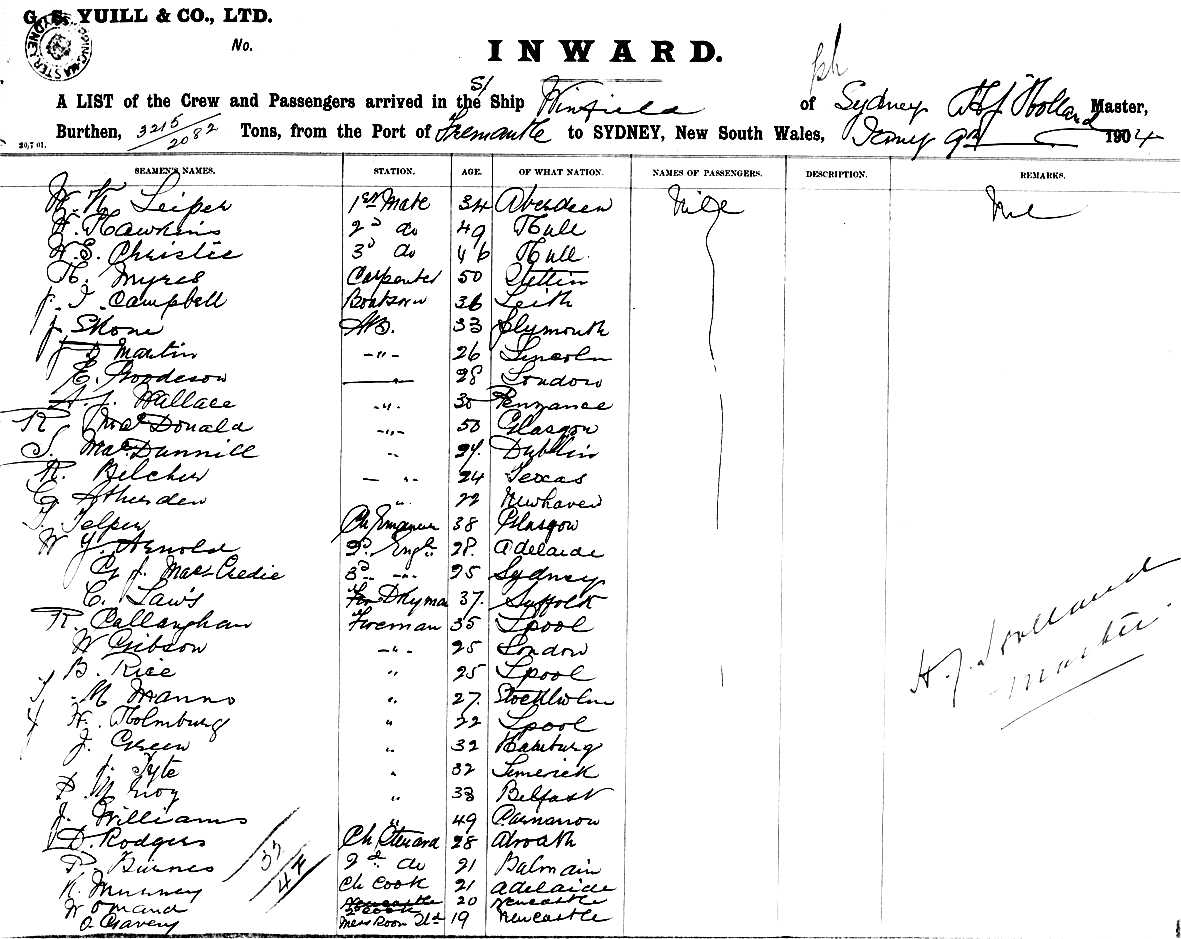 G. S. YUILL & CO., LTD.
No.
INWARD.
A LIST of the Crew and Passengers arrived in the S/ Ship Winfield of Sydney H J Holland Master,
Burthen, 3215/2082 Tons, from the Port of Fremantle to SYDNEY, New South Wales, 9th 1904
20,7 01.
SEAMEN'S NAMES. STATION. AGE. OF WHAT NATION. NAMES OF PASSENGERS. DESCRIPTION. REMARKS.
Leiper 1st Mate 34 Aberdeen Nil Nil
Hawkins 2d do 49 Hull
Christie 3d do 46 Hull
Myres Carpenter 50 Stettin
J. Campbell Boatswn 36 Leith
J. Stone A.B. 33 Plymouth
Martin -"- 26 Lincoln
E. 28 London
A. J. Wallace -"- 30 Penzance
R MacDonald -"- 50 Glasgow
S. MacDunnill " 24 Dublin
R. Belcher " 24 Texas
G 22 Newhaven
T. Telper Ch 38 Glasgow
W J. Arnold 2d Engr 28 Adelaide
G J. MacCredie 3d -"- 25 Sydney
C. Laws Dkyman 37 Suffolk
R. Callanghan Fireman 35 Lpool
W Gibson -"- 25 London
B. Rice " 25 Lpool
M Manno " 27 Stockholm
H. Holmburg " 22 Lpool
J. Green " 32 Hamburg
J. Tyte " 32 Limerick
" 38 Belfast
J. Williams " 49 Carnarvon
D. Rodgers Ch Steward 28 Abroath
Burnes 2d do 21 Balmain
Ch Cook 21 Adelaide
W 2 Cook 20 Newcastle
Mess Room Std 19 Newcastle
H. J. Holland
Master